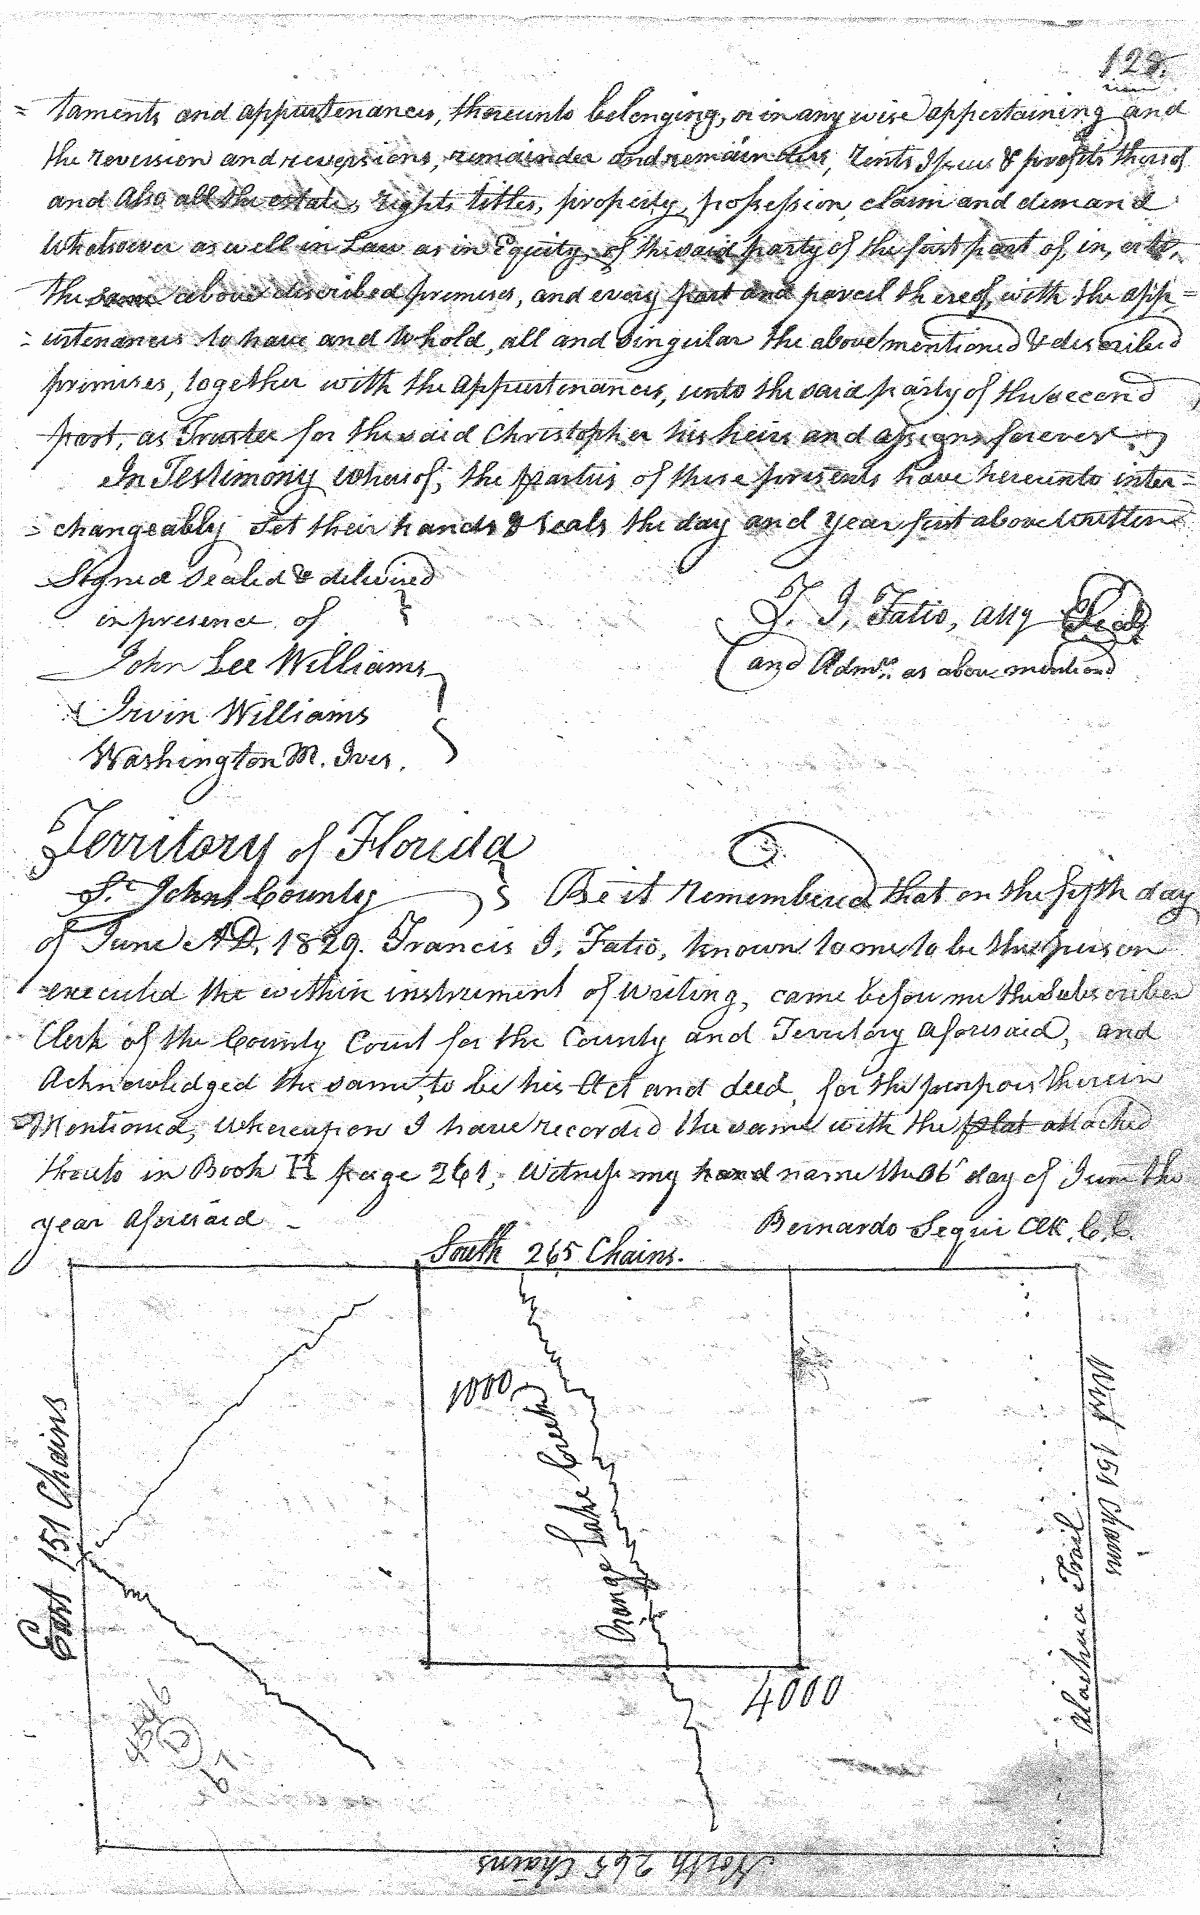 128.
= taments and appurtenances, thereunto belonging, or in any wise appertaining and
the revession and reversions, remainder and remainders, rents Issues & profits thereof
and Also all the estate, rights titles, property, possession, claim and demand
Whatsoever as well in Law as in Equity, of the said party of the first part of, in, or to,
the same above described premises, and every part and parcel thereof, with the app =
= urtenances to have and to hold, all and Singular the above mentioned & described
premises, together with the appurtenances, unto the said party of the second
part, as Trustee for the said Christopher his heirs and assigns forever.
In Testimony whereof, the parties of these presents have hereunto inter =
= changeably Set their hands & Seals the day and year first above written
Signed Sealed & delivered
in presence of
John Lee Williams
Irvin Williams
Washington M. Ives.
F. J. Fatio, atty Seal
(and Admr. as above mentioned
Territory of Florida
St. Johns County } Be it remembered that on the fifth day
of June A.D. 1829. Francis J. Fatio, known to me to be the person
executed the within instrument of Writing, came before me the Subscriber
Clerk of the County Court for the County and Territory aforesaid, and
Acknowledged the same, to be his Act and deed, for the purpose therein
Mentioned, whereupon I have recorded the same with the plat attached
thereto in Book H page 261, Witness my hand name the 06 day of June the
year aforesaid -
Bernardo Segui Clk. C. C.
South 265 Chains.
East 151 Chains
1000
Orange Lake Creek
West 151 Chains
Alachua Trail.
4000
North 265 Chains